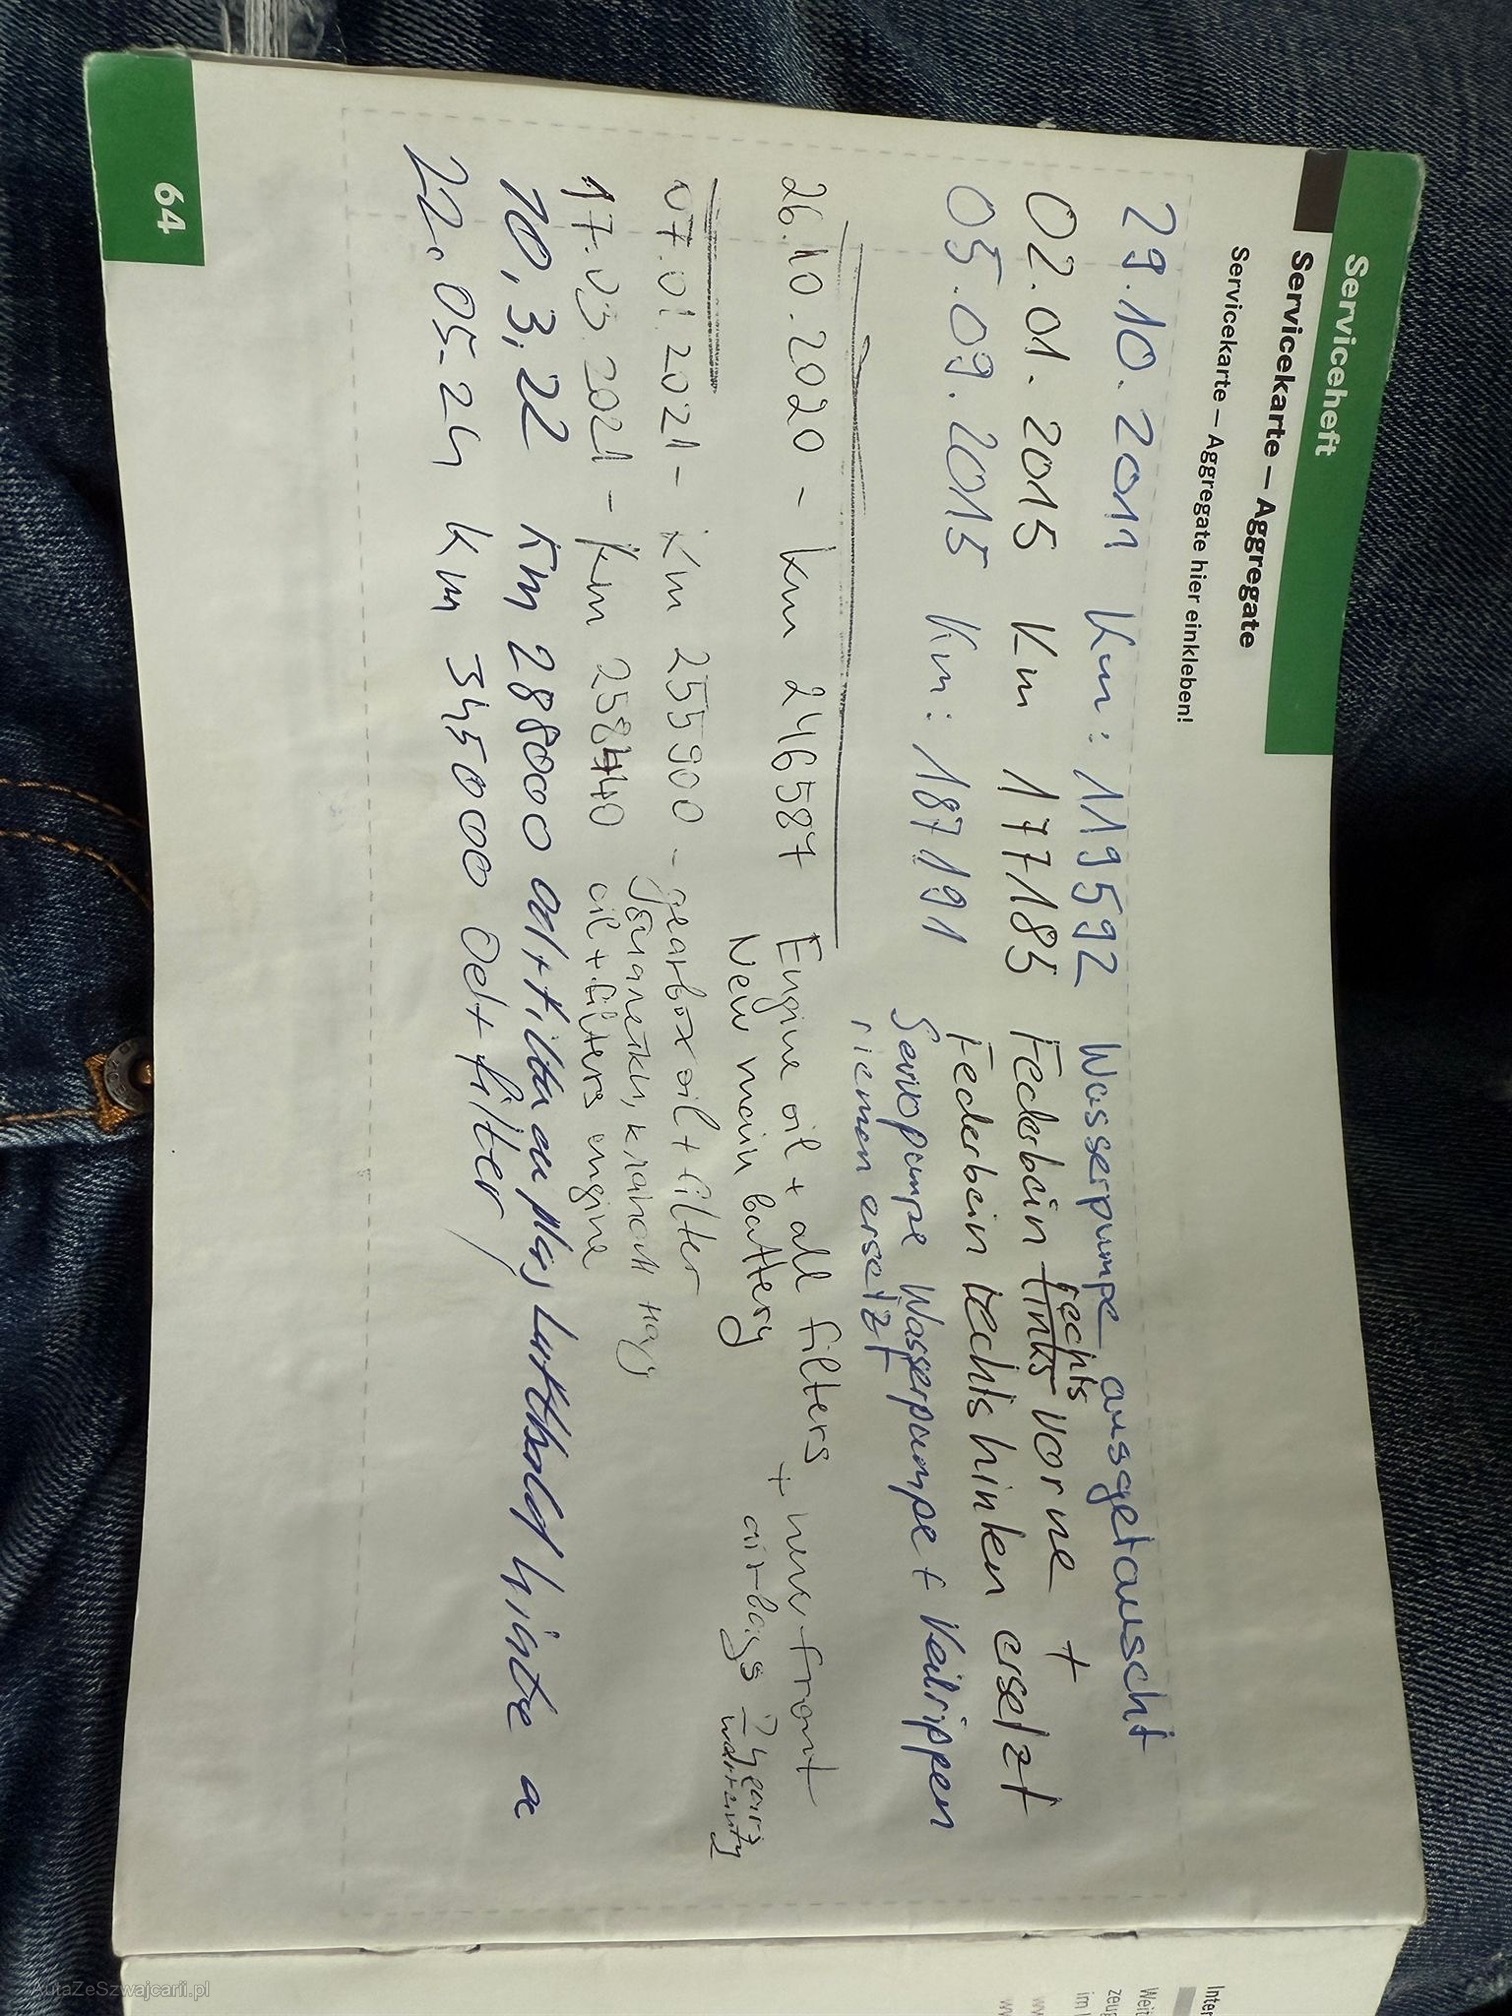 Serviceheft
Servicekarte – Aggregate
Servicekarte – Aggregate hier einkleben!
29.10.2011 Km: 119592 Wasserpumpe ausgetauscht
02.01.2015 Km 177185 Federbein links rechts vorne +
Federbein rechts hinten ersetzt
05.09.2015 Km: 187191 Servopumpe Wasserpumpe + Keilrippen
riemen ersetzt
26.10.2020 - km 246587 Engine oil + all filters + new front
New main battery air-bags 2 years
warranty
07.01.2021 - km 255900 - gearbox oil + filter
17.03.2021 - Km 258440 oil + filters engine
10,3,22 Km 288000
22.05.24 km 345000 Oel + filter
64
AutaZeSzwajcarii.pl